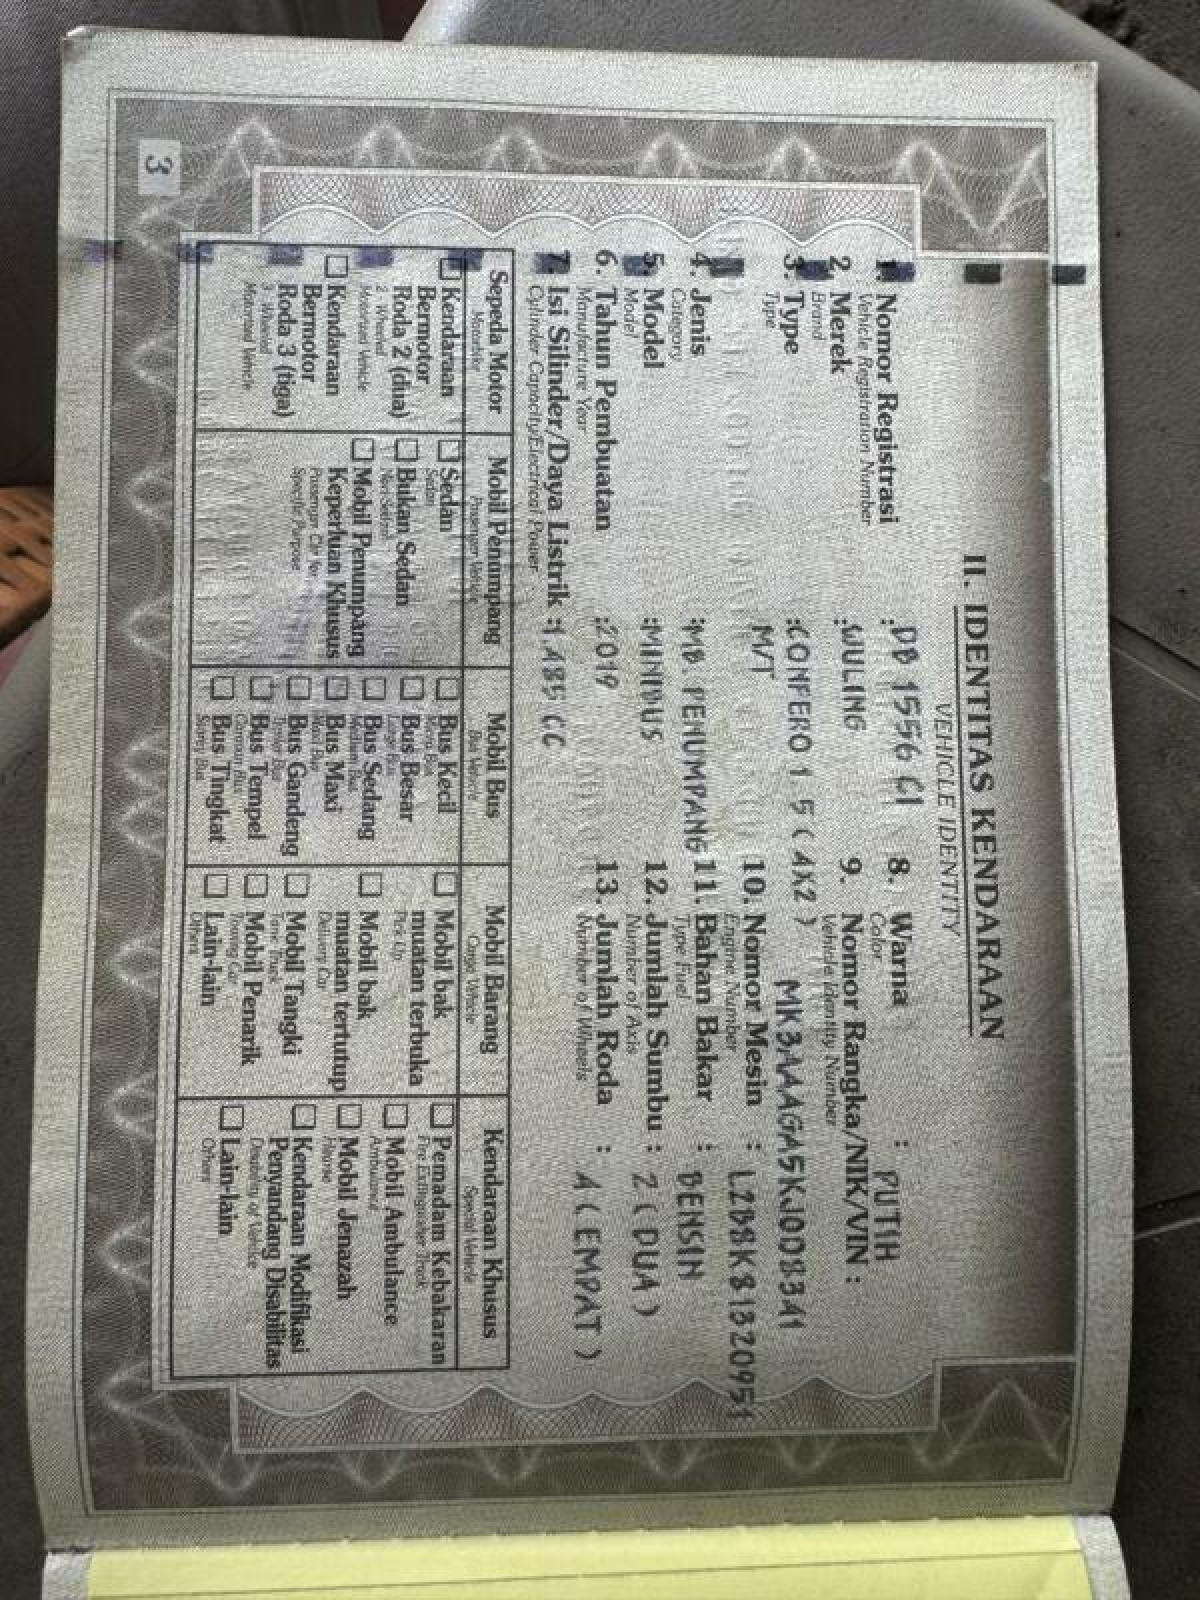 II. IDENTITAS KENDARAAN
VEHICLE IDENTITY
1. Nomor Registrasi : DB 1556 CI
Vehicle Registration Number
2. Merek : WULING
Brand
3. Type : CONFERO 1 5 ( 4X2 )
Type
M/T
4. Jenis : MB PENUMPANG
Category
5. Model : MINIBUS
Model
6. Tahun Pembuatan : 2019
Manufacture Year
7. Isi Silinder/Daya Listrik : 1.485 CC
Cylinder Capacity/Electrical Power
8. Warna : PUTIH
Color
9. Nomor Rangka/NIK/VIN :
Vehicle Identity Number
MK3AAAGA5KJ008341
10. Nomor Mesin : L2B8K81320951
Engine Number
11. Bahan Bakar : BENSIN
Type Fuel
12. Jumlah Sumbu : 2 ( DUA )
Number of Axis
13. Jumlah Roda : 4 ( EMPAT )
Number of Wheels
Sepeda Motor
Kendaraan
Bermotor
Roda 2 (dua)
2 Wheeled
Motorized Vehicle
Kendaraan
Bermotor
Roda 3 (tiga)
3 Wheeled
Motorized Vehicle
Mobil Penumpang
Passenger Vehicle
Sedan
Sedan
Bukan Sedan
Non-Sedan
Mobil Penumpang
Keperluan Khusus
Passenger Car for
Specific Purpose
Mobil Bus
Bus Vehicle
Bus Kecil
Bus Besar
Large Bus
Bus Sedang
Medium Bus
Bus Maxi
Maxi Bus
Bus Gandeng
Bus Tempel
Bus Tingkat
Mobil Barang
Cargo Vehicle
Mobil bak
muatan terbuka
Pick Up
Mobil bak
muatan tertutup
Delivery Car
Mobil Tangki
Mobil Penarik
Towing Car
Lain-lain
Others
Kendaraan Khusus
Special Vehicle
Pemadam Kebakaran
Fire Extinguisher Truck
Mobil Ambulance
Mobil Jenazah
Hearse
Kendaraan Modifikasi
Penyandang Disabilitas
Lain-lain
Others
3